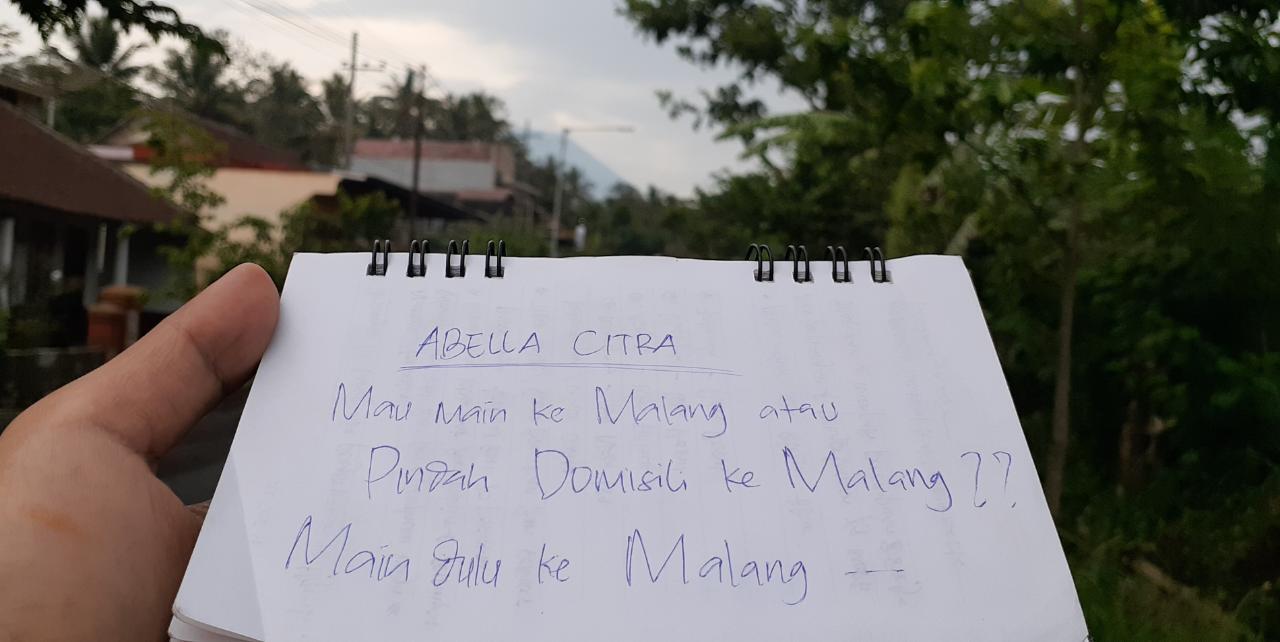 ABELLA CITRA
Mau main ke Malang atau
Pindah Domisili ke Malang??
Main dulu ke Malang —